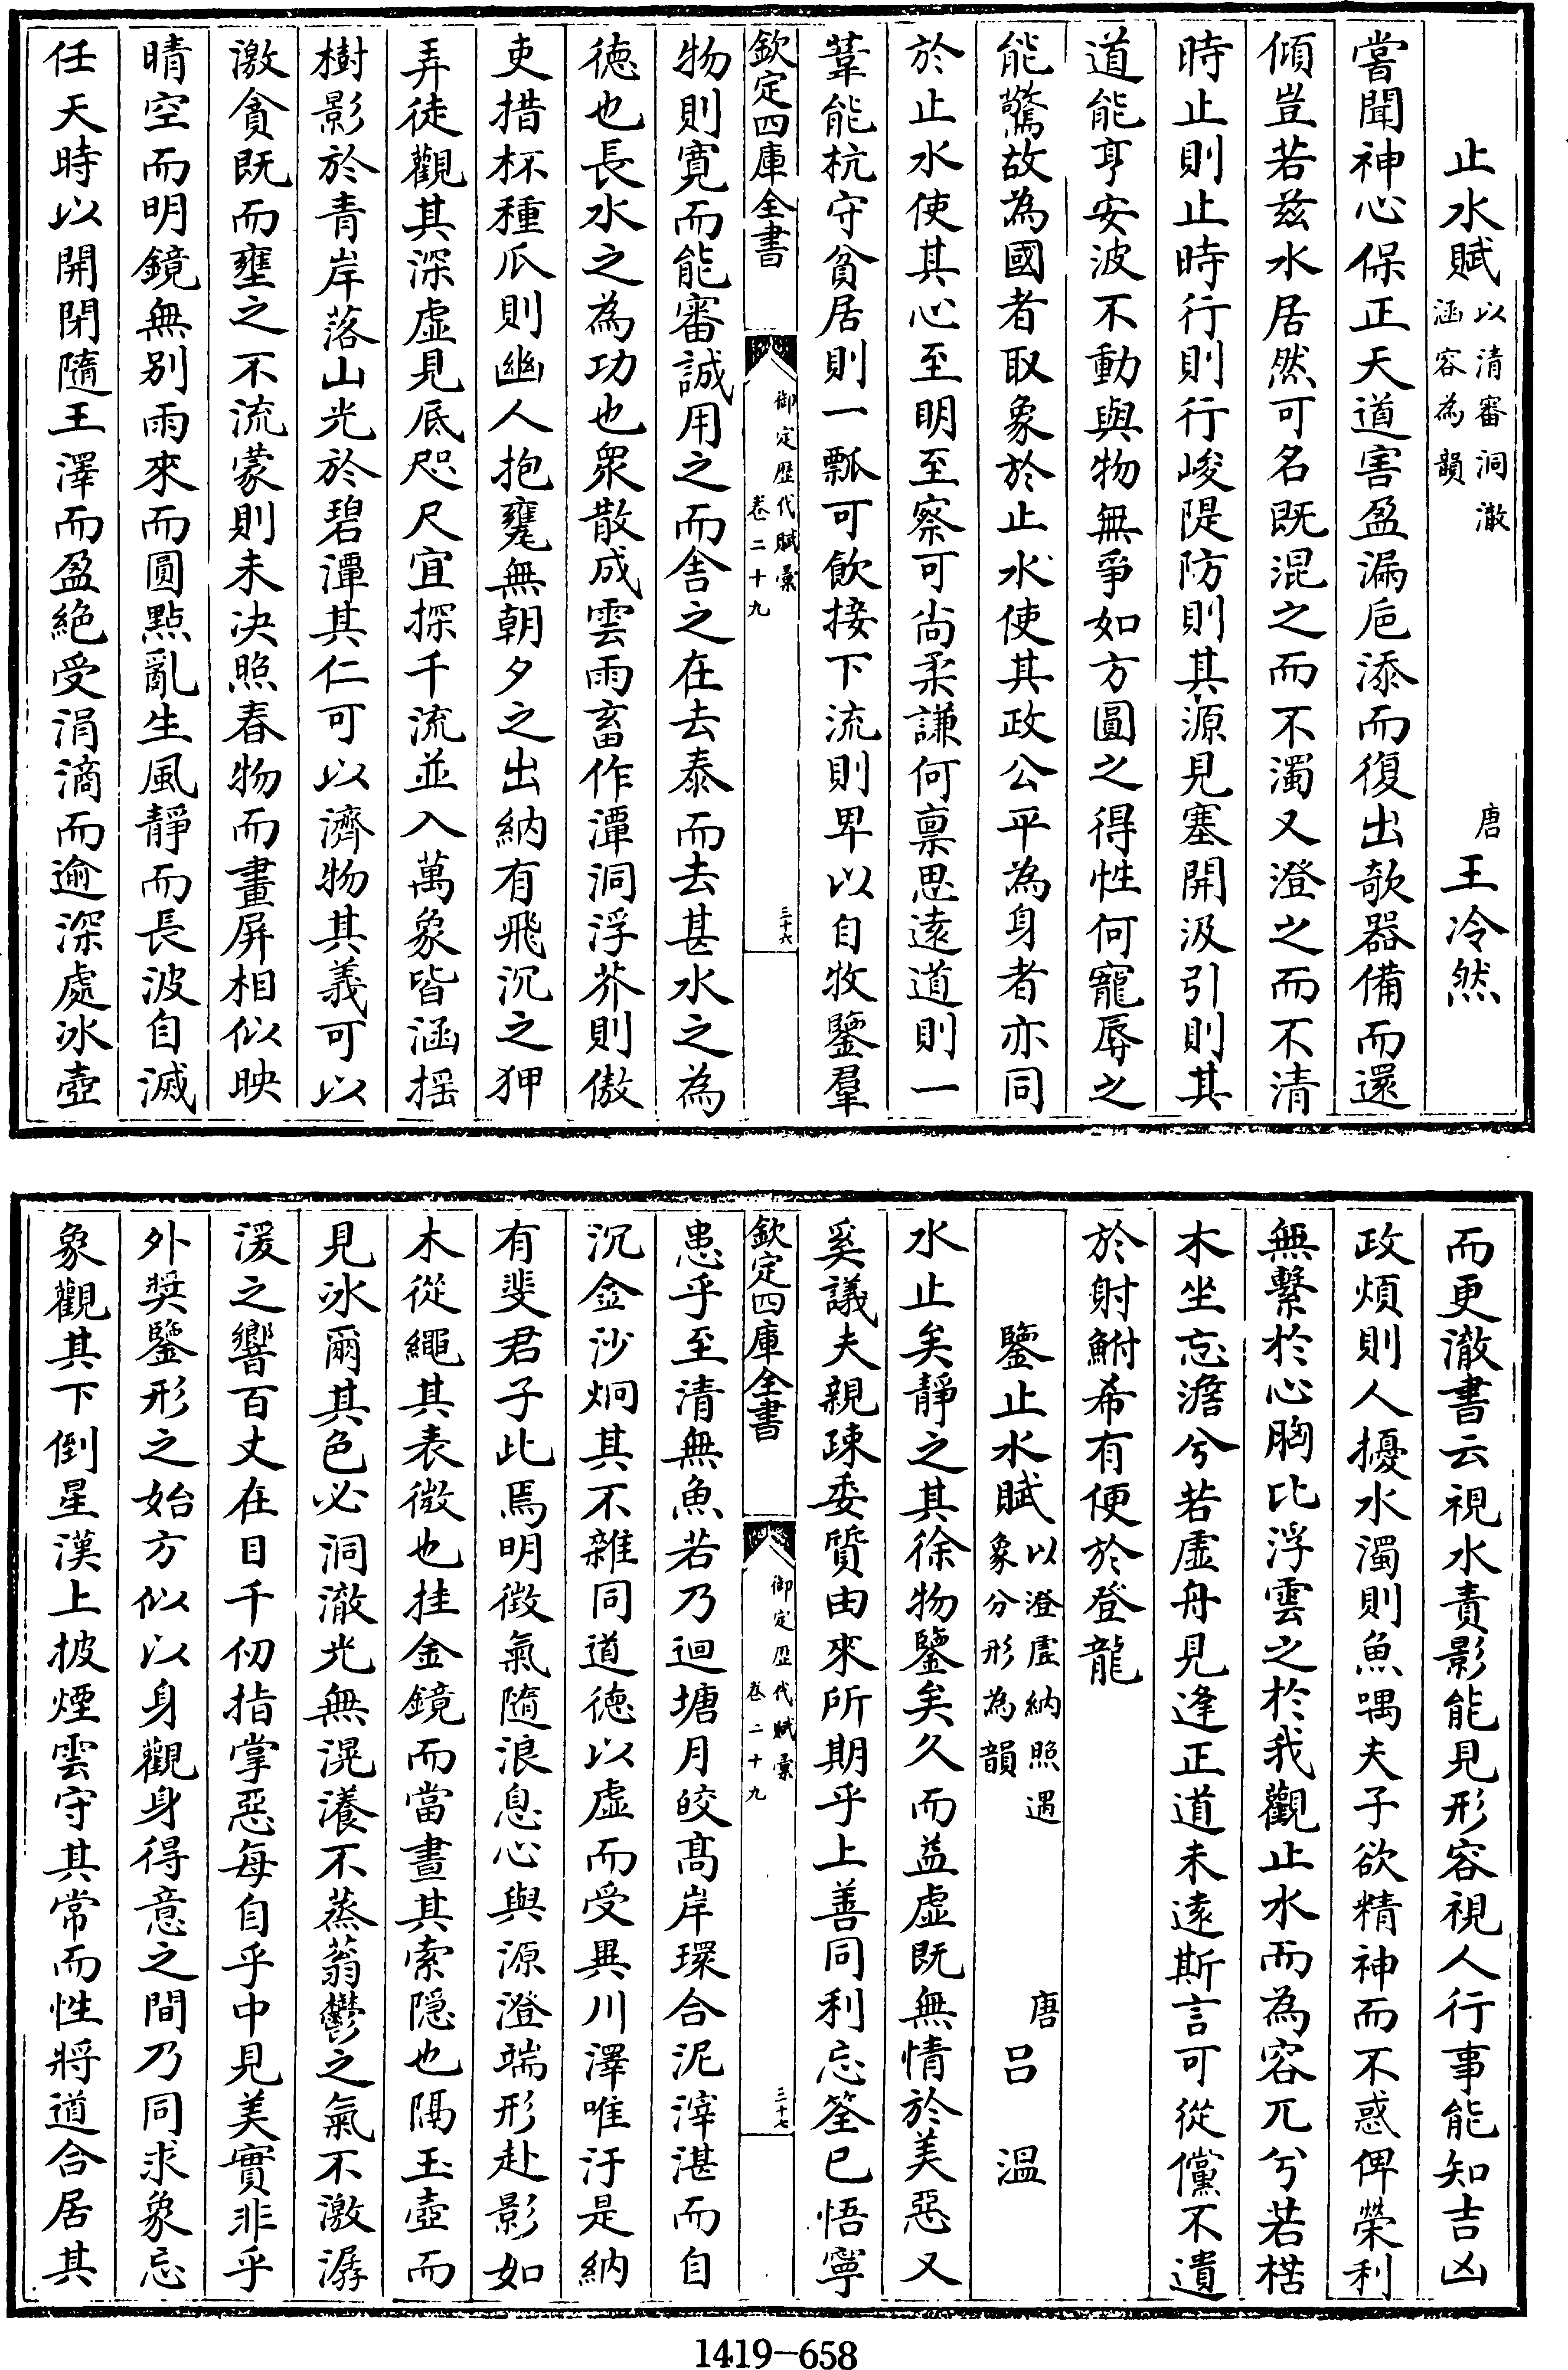 止水賦以清審洞澈涵容為韻 唐王泠然
嘗聞神心保正天道害盈漏巵添而復出欹器備而還
傾豈若兹水居然可名既混之而不濁又澄之而不清
時止則止時行則行峻隄防則其源見塞開汲引則其
道能亨安波不動與物無爭如方圓之得性何寵辱之
能驚故為國者取象於止水使其政公平為身者亦同
於止水使其心至明至察可尚柔謙何稟思逺道則一
葦能杭守貧居則一瓢可飲接下流則卑以自牧鑒羣
欽定四庫全書 御定歴代賦彙卷二十九 三十六
物則寛而能審誠用之而舍之在去泰而去甚水之為
徳也長水之為功也衆散成雲雨畜作潭洞浮芥則傲
吏措杯種瓜則幽人抱甕無朝夕之出納有飛沉之狎
弄徒觀其深虛見底咫尺宜探千流並入萬象皆涵揺
樹影於青岸落山光於碧潭其仁可以濟物其義可以
激貪既而壅之不流蒙則未决照春物而畫屏相似映
晴空而明鏡無别雨來而圓點亂生風靜而長波自滅
任天時以開閉隨王澤而盈絶受涓滴而逾深處冰壺
而更澈書云視水責影能見形容視人行事能知吉凶
政煩則人擾水濁則魚喁夫子欲精神而不惑俾榮利
無繫於心胸比浮雲之於我觀止水而為容兀兮若楛
木坐忘澹兮若虛舟見逢正道未逺斯言可從儻不遺
於射鮒希有便於登龍
鑒止水賦以澄虛納照遇象分形為韻 唐吕溫
水止矣靜之其徐物鑒矣久而益虛既無情於美惡又
奚議夫親疎委質由來所期乎上善同利忘筌已悟寧
欽定四庫全書 御定歴代賦彙卷二十九 三十七
患乎至清無魚若乃迴塘月皎髙岸環合泥滓湛而自
沉金沙炯其不雜同道徳以虛而受異川澤唯汙是納
有斐君子此焉明徴氣隨浪息心與源澄端形赴影如
木從繩其表微也挂金鏡而當晝其索隠也隔玉壺而
見冰爾其色必洞澈光無滉瀁不蒸蓊鬱之氣不激潺
湲之響百丈在目千仞指掌惡每自乎中見美實非乎
外奬鑒形之始方似以身觀身得意之間乃同求象忘
象觀其下倒星漢上披煙雲守其常而性將道合居其
1419-658